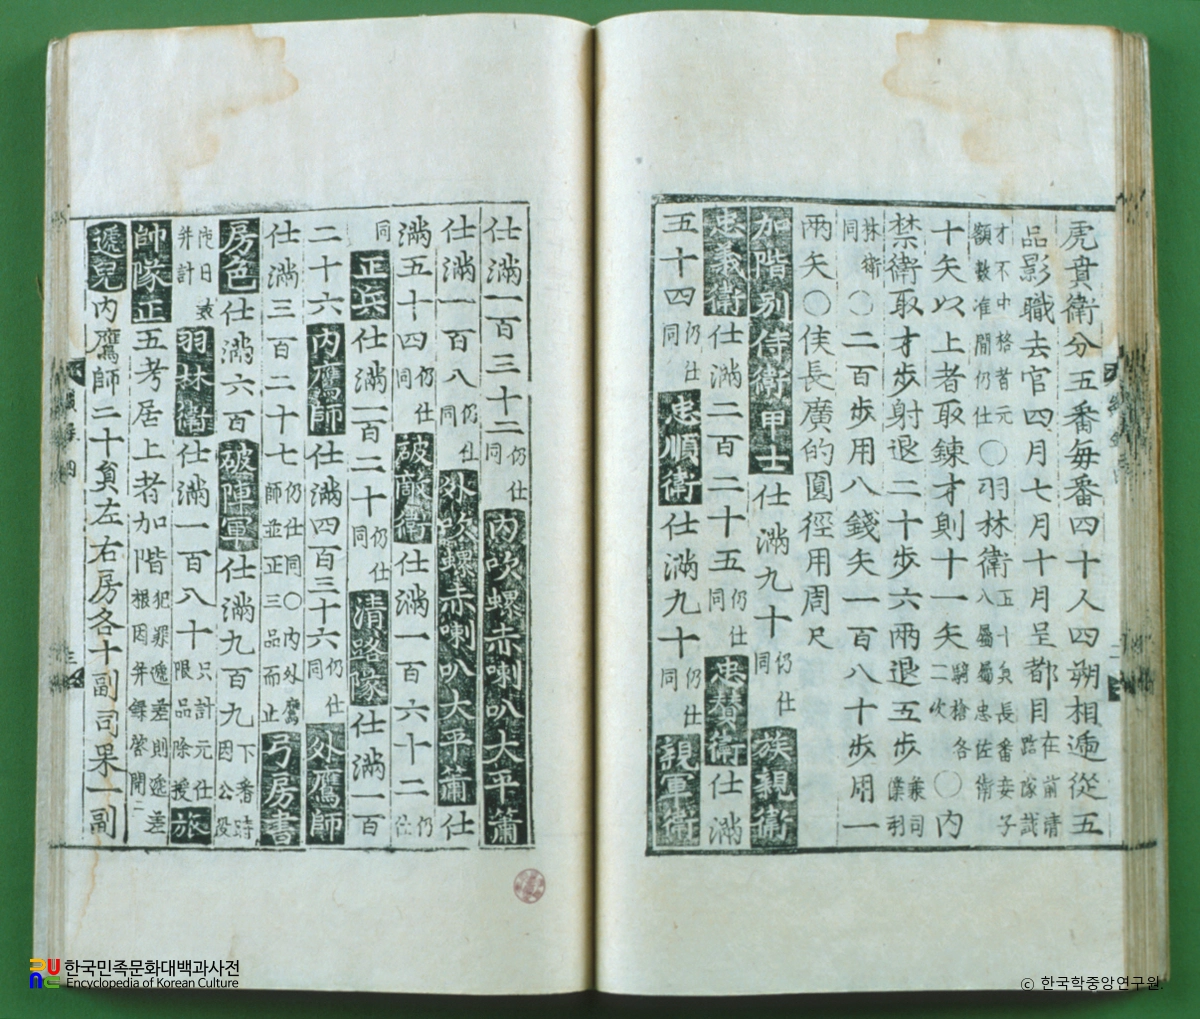 虎賁衛分五番每番四十人四朔相遞從五
品影職去官四月七月十月呈都目在前清路隊哉
才不中格者元額數准閒仍仕〇羽林衛五十負長番妾子八屬屬忠佐衛
十矢以上者取鍊才則十一矢騎槍各二次〇內
禁衛取才步射退二十步六兩退五步兼司僕羽
林衛同〇二百步用八錢矢一百八十步用一
兩矢〇侯長廣的圓徑用周尺
加階別侍衛甲士仕滿九十仍仕同族親衛
忠義衛仕滿二百二十五仍仕同忠贊衛仕滿
五十四仍仕同忠順衛仕滿九十仍仕同親軍衛
仕滿一百三十二仍仕同內吹螺赤喇叭大平簫
仕滿一百八仍仕同外吹螺赤喇叭大平簫仕
滿五十四仍仕同破敵衛仕滿一百六十二仍仕
同正兵仕滿一百二十仍仕同清路隊仕滿一百
二十六內鷹師仕滿四百三十六仍仕同外鷹師
仕滿三百二十七仍仕同〇內外鷹師並正三品而止弓房書
房色仕滿六百破陣軍仕滿九百九下番時因公役
他日數幷計羽林衛仕滿一百八十只計元仕限品除授旅
帥隊正五考居上者加階犯罪遞差則遞差根因幷錄啓聞二
遞兒內鷹師二十負左右房各十副司果一副
한국민족문화대백과사전
Encyclopedia of Korean Culture
ⓒ 한국학중앙연구원